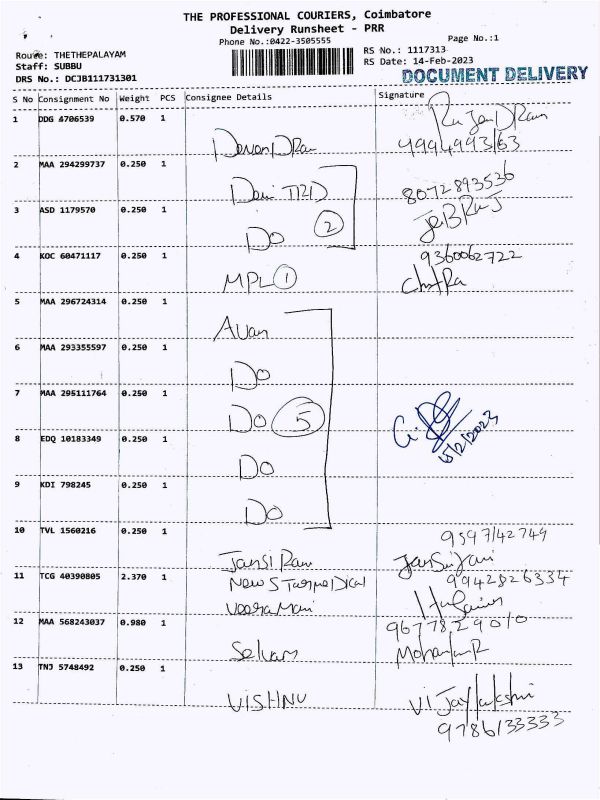 THE PROFESSIONAL COURIERS, Coimbatore
Delivery Runsheet - PRR
Phone No.:0422-3505555
Page No.:1
Route: THETHEPALAYAM
Staff: SUBBU
DRS No.: DCJB111731301
RS No.: 1117313
RS Date: 14-Feb-2023
DOCUMENT DELIVERY
S No Consignment No Weight PCS Consignee Details Signature
1 DDG 4706539 0.570 1
2 MAA 294299737 0.250 1
8072893536
3 ASD 1179570 0.250 1
Do 2
4 KOC 60471117 0.250 1
9360062722
MPL 1
5 MAA 296724314 0.250 1
6 MAA 293355597 0.250 1
Do
7 MAA 295111764 0.250 1
Do 5
15/2/2023
8 EDQ 10183349 0.250 1
Do
9 KDI 798245 0.250 1
Do
10 TVL 1560216 0.250 1
9597142749
Jansi Rani
11 TCG 40390805 2.370 1
9942826334
12 MAA 568243037 0.980 1
9677829010
Selvam
13 TNJ 5748492 0.250 1
VISHNU Vijaylakshmi
9786133333